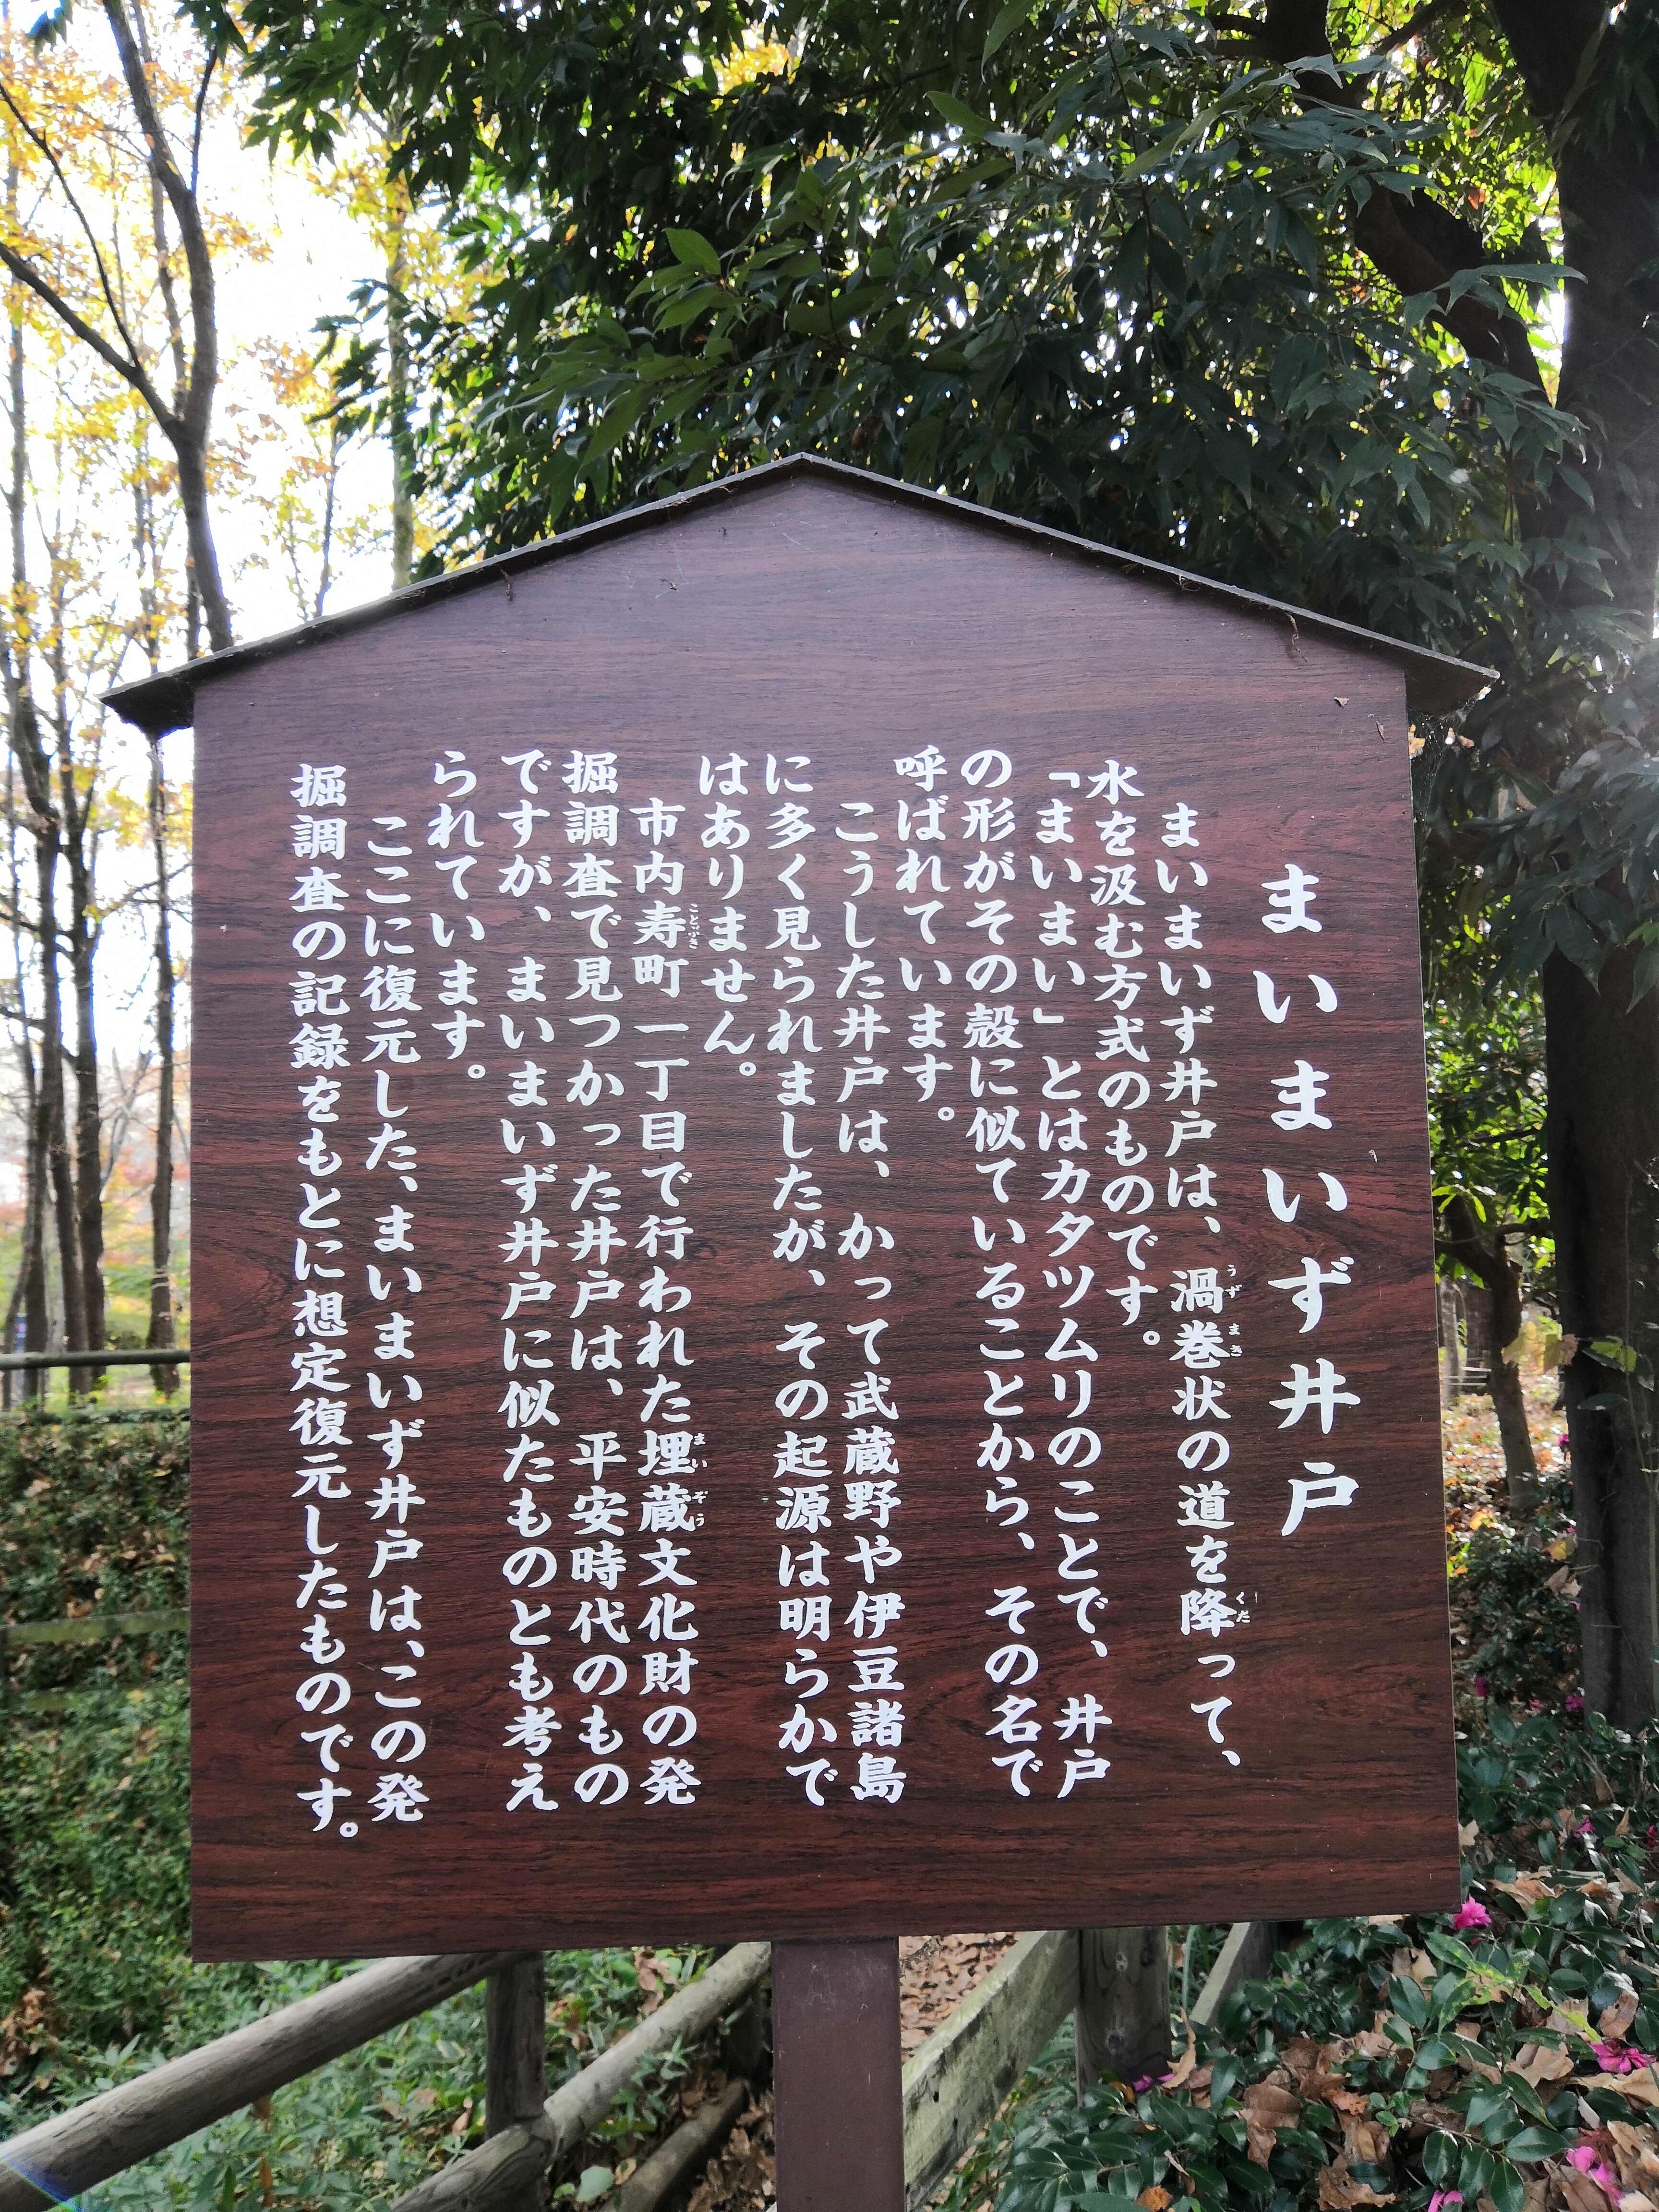 まいまいず井戸
まいまいず井戸は、渦巻状の道を降って、
水を汲む方式のものです。
「まいまい」とはカタツムリのことで、井戸
の形がその殻に似ていることから、その名で
呼ばれています。
こうした井戸は、かって武蔵野や伊豆諸島
に多く見られましたが、その起源は明らかで
はありません。
市内寿町一丁目で行われた埋蔵文化財の発
掘調査で見つかった井戸は、平安時代のもの
ですが、まいまいず井戸に似たものとも考え
られています。
ここに復元した、まいまいず井戸は、この発
掘調査の記録をもとに想定復元したものです。